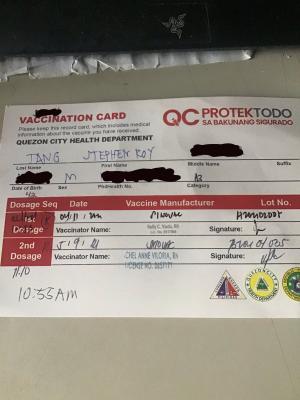 VACCINATION CARD
Please keep this record card, which includes medical
information about the vaccine you have received.
QUEZON CITY HEALTH DEPARTMENT
QC PROTEKTODO
SA BAKUNANG SIGURADO
TANG STEPHEN ROY
Last Name First Name Middle Name Suffix
M A3
Date of Birth Sex PhilHealth No. Category
Dosage Seq Date Vaccine Manufacturer Lot No.
1st
Dosage Vaccinator Name: Signature:
2nd 5/9/21
Dosage Vaccinator Name: CHEL ANNE VILORIA, RN Signature:
LICENSE NO.
11:10
10:55AM